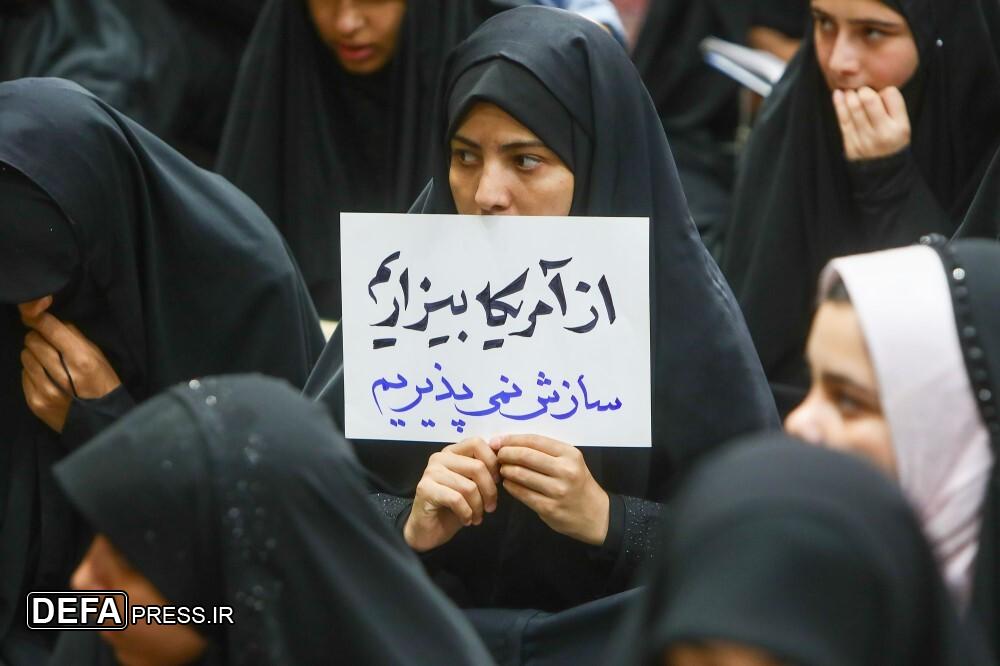 از آمریکا بیزاریم
سازش نمی پذیریم
DEFA PRESS.IR